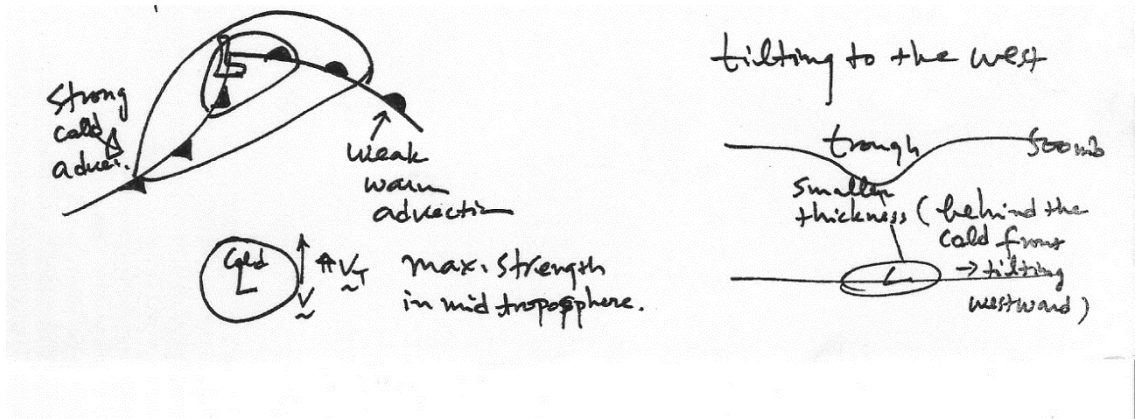 L
Strong
cold
advec.
weak
warm
advection
Cold
L
V
V_T
max. strength
in mid troposphere.
tilting to the west
trough
500mb
smaller
thickness (behind the
cold front
→ tilting
westward)
L